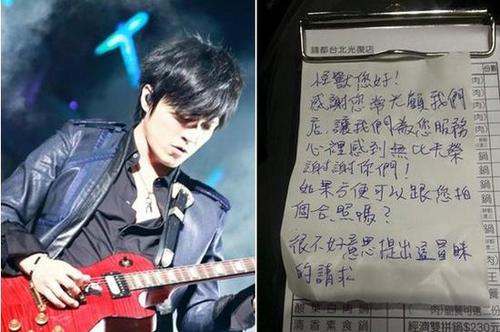 鍋都台北光復店
怪獸您好!
感謝您常光顧我們
店,讓我們為您服務
心裡感到無比光榮
謝謝你們!
如果方便可以跟您拍
個合照嗎?
很不好意思提出這冒昧
的請求
清香素食鍋
經濟雙拼鍋$230